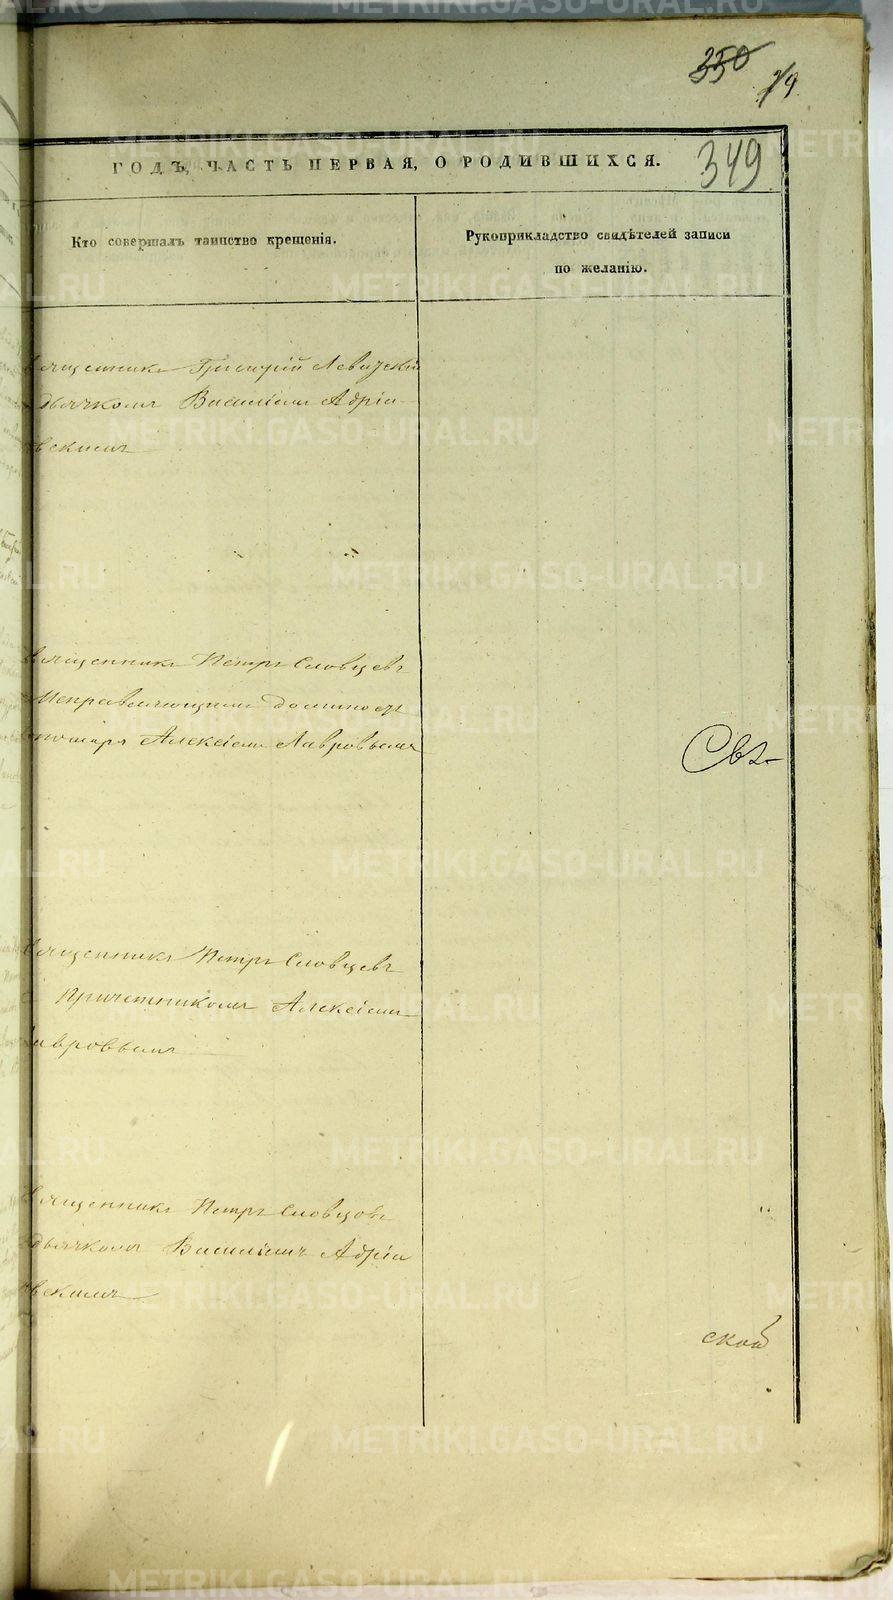 350
349
ГОДЪ, ЧАСТЬ ПЕРВАЯ, О РОДИВШИХСЯ.
Кто совершалъ таинство крещенія.
Рукоприкладство свидѣтелей записи
по желанію.
вященникъ Григорій Левицкій
дьячкомъ Василіемъ Адріа-
вскимъ
вященникъ Петръ Словцевъ
Исправляющимъ должность
пономаря Алексіемъ Лавровымъ
Свя-
вященникъ Петръ Словцевъ
Причетникомъ Алексіемъ
авровымъ
вященникъ Петръ Словцовъ
дьячкомъ Василіемъ Адріа
вскимъ
ской
METRIKI.GASO-URAL.RU